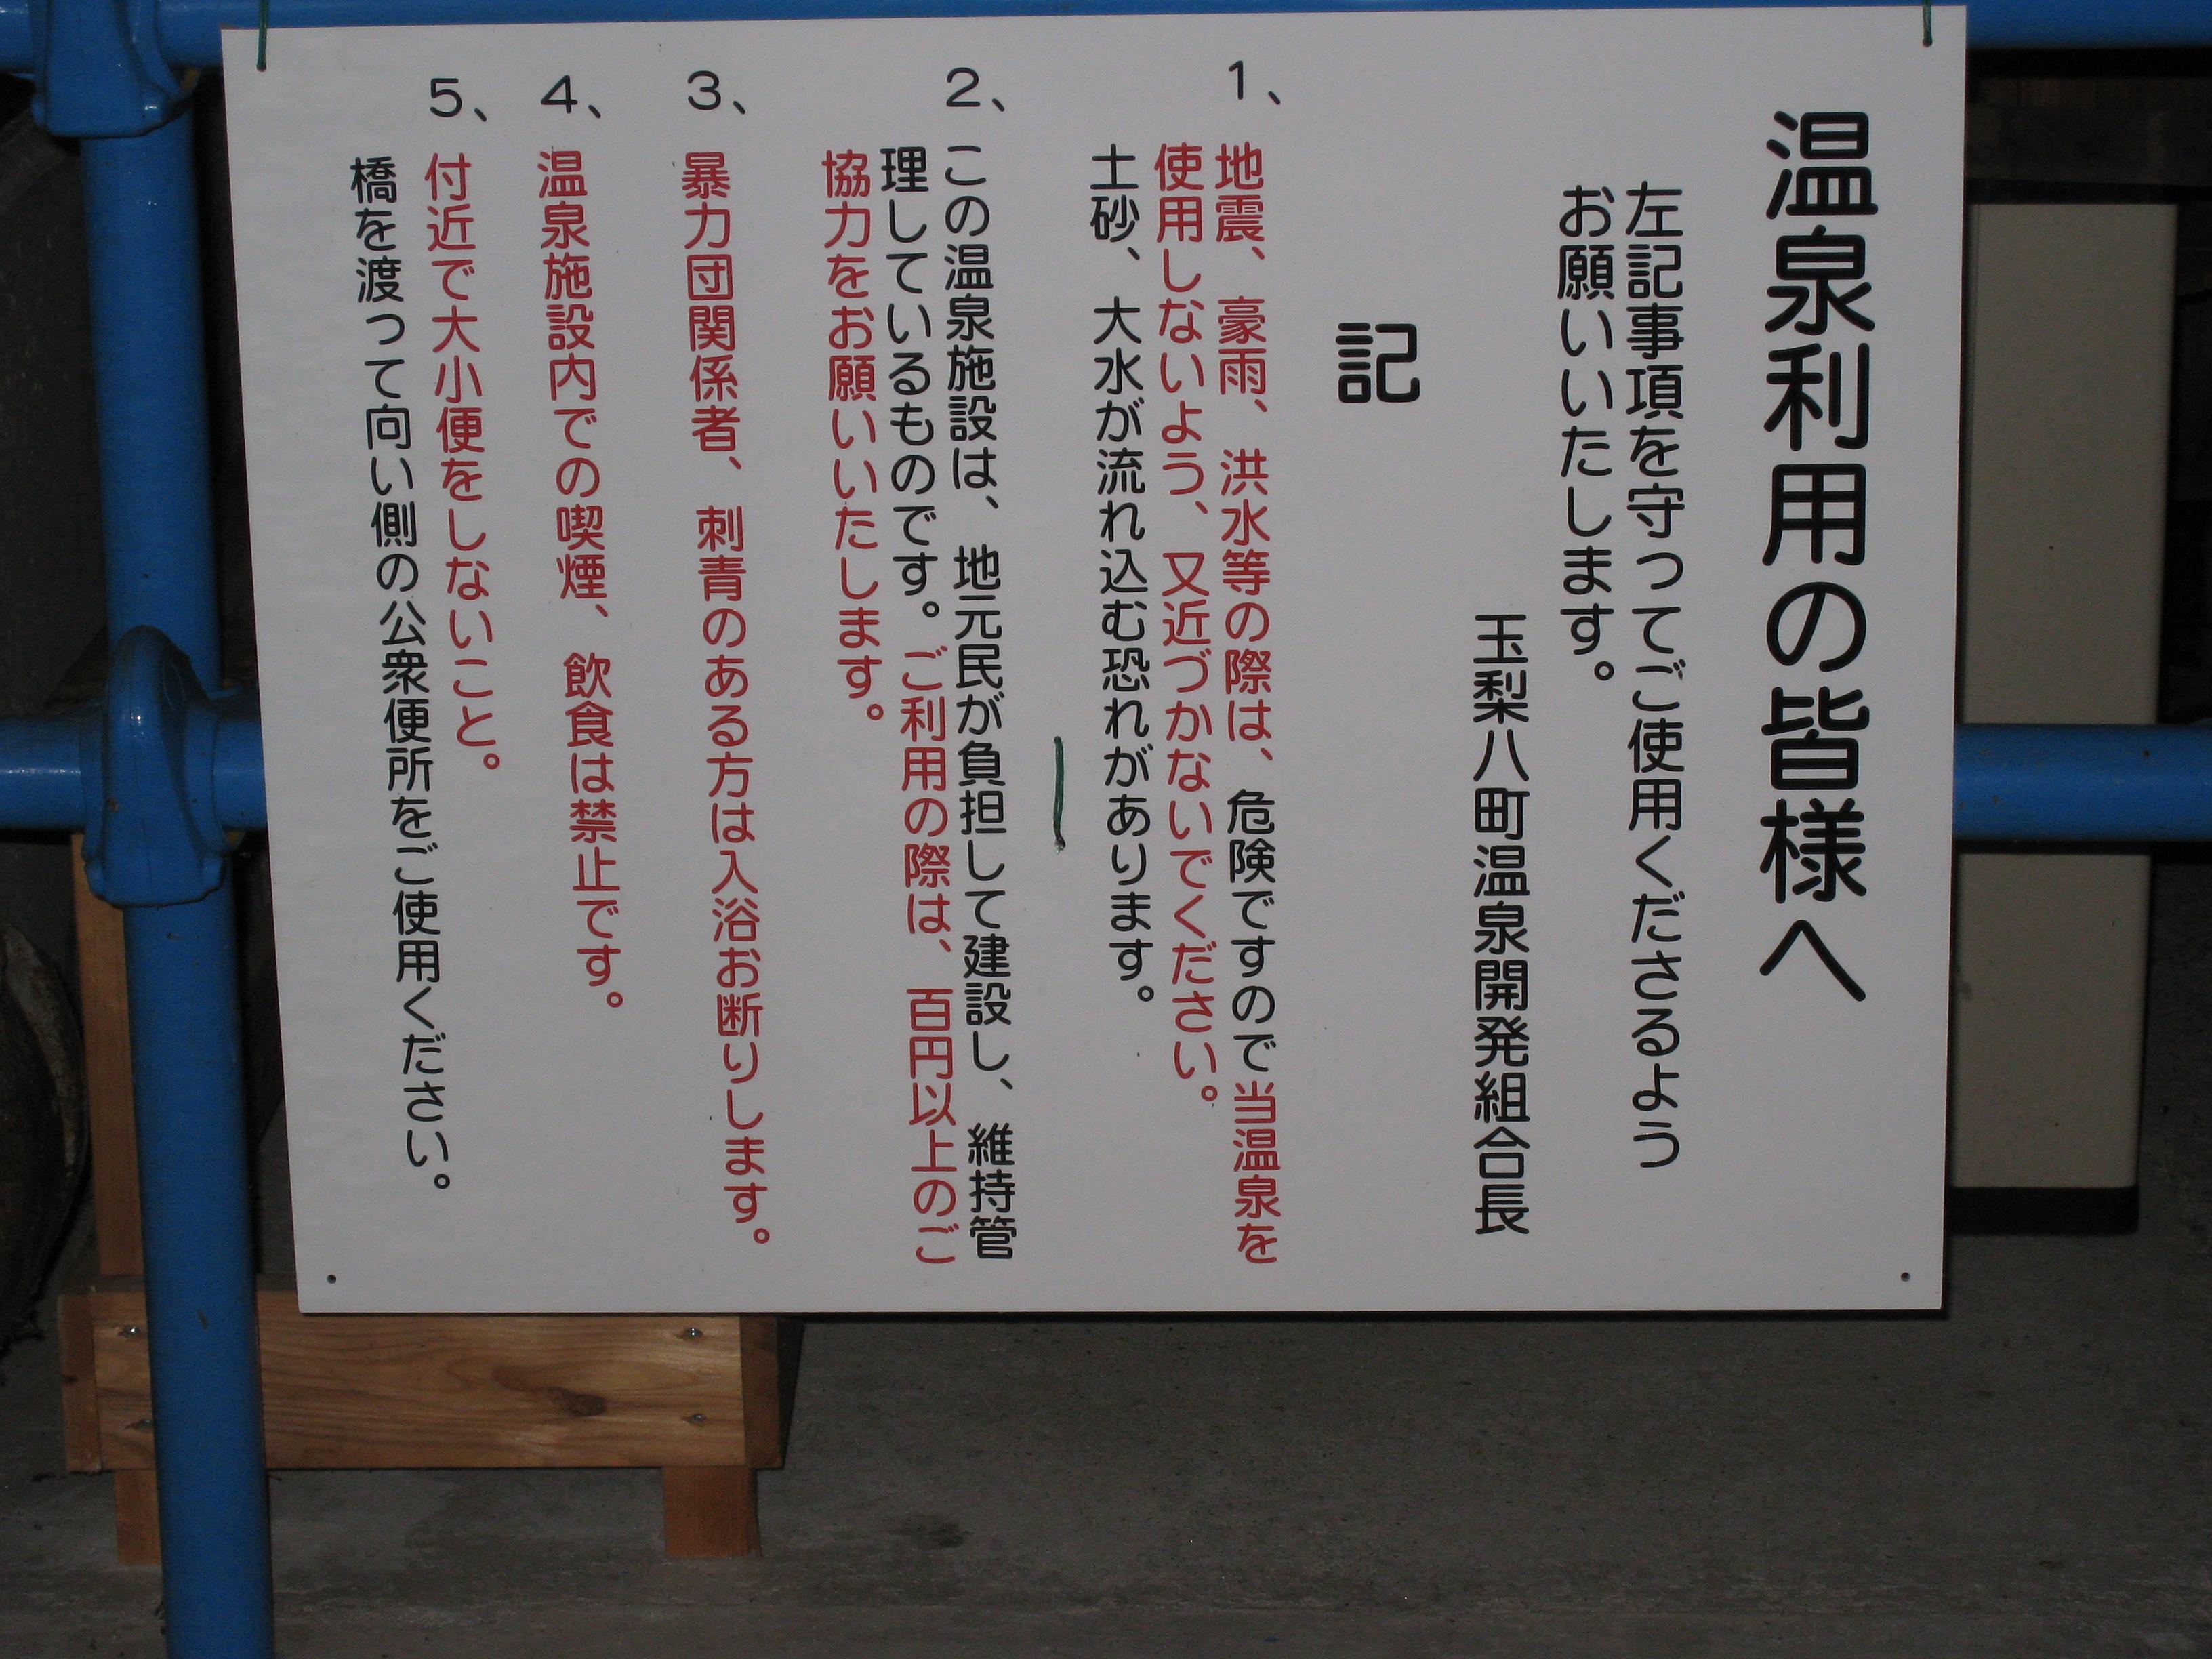 温泉利用の皆様へ
左記事項を守ってご使用くださるよう
お願いいたします。
玉梨八町温泉開発組合長
記
1、地震、豪雨、洪水等の際は、危険ですので当温泉を
使用しないよう、又近づかないでください。
土砂、大水が流れ込む恐れがあります。
2、この温泉施設は、地元民が負担して建設し、維持管
理しているものです。ご利用の際は、百円以上のご
協力をお願いいたします。
3、暴力団関係者、刺青のある方は入浴お断りします。
4、温泉施設内での喫煙、飲食は禁止です。
5、付近で大小便をしないこと。
橋を渡って向い側の公衆便所をご使用ください。